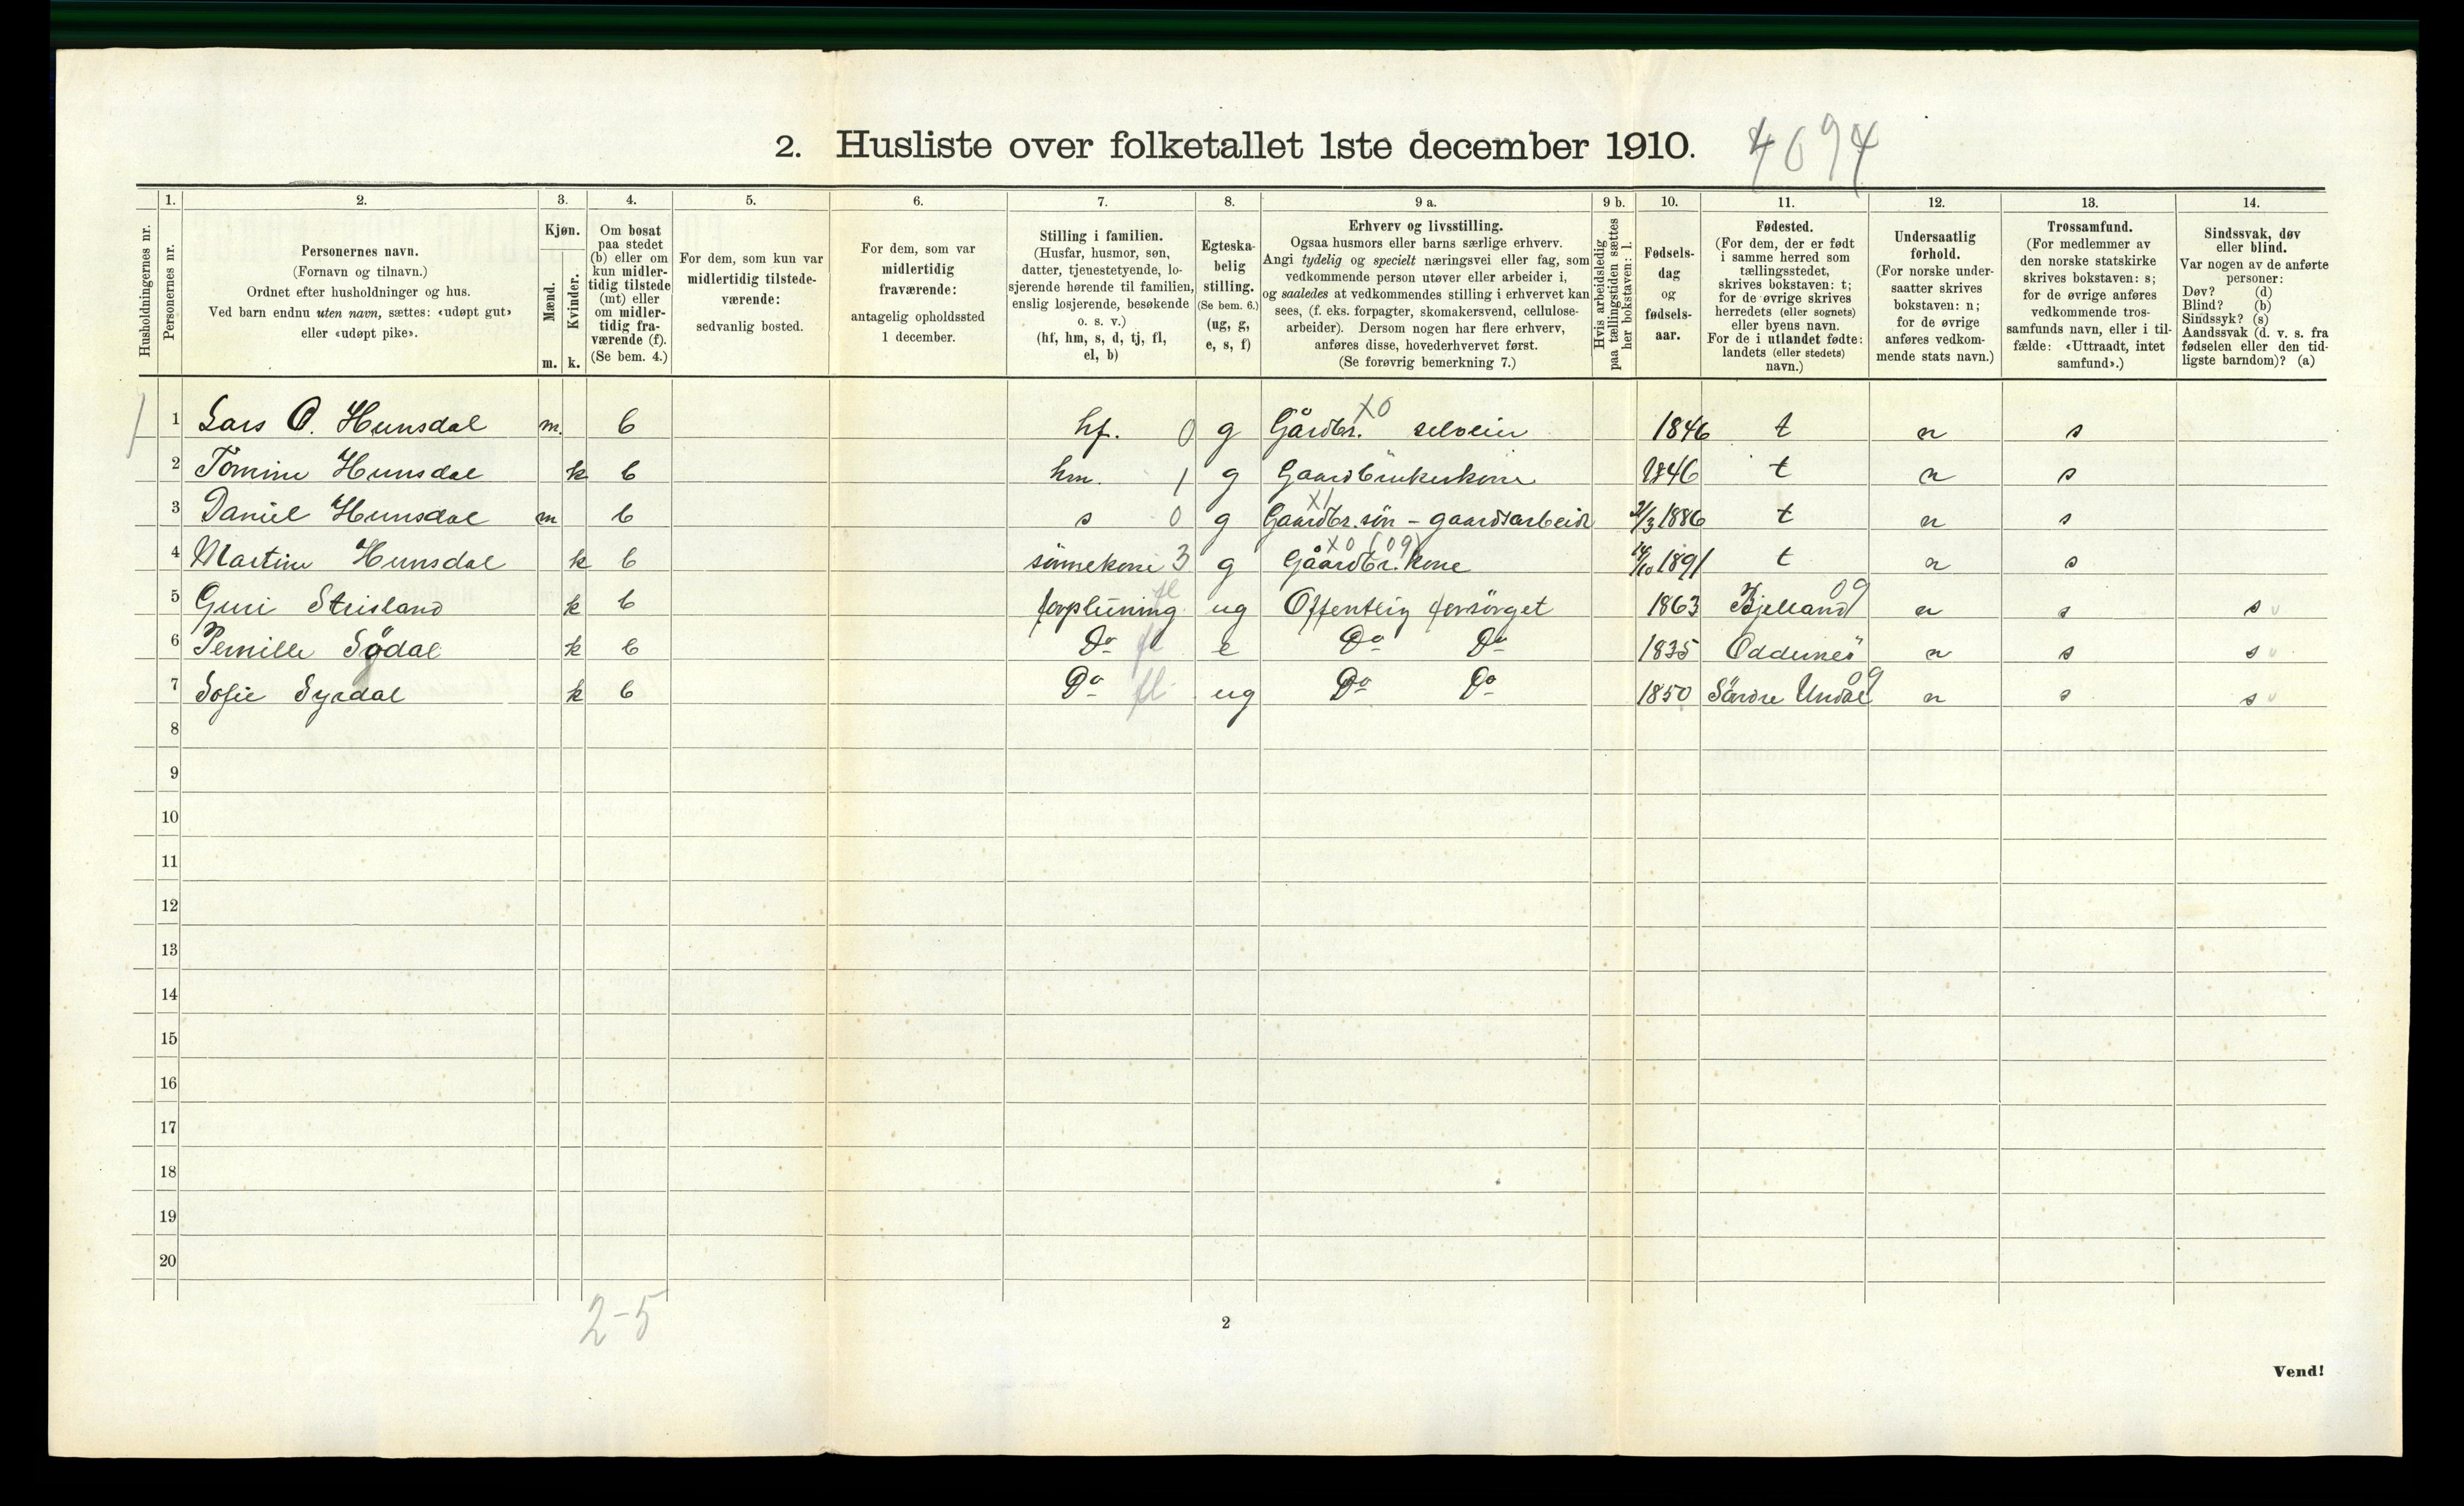 2. Husliste over folketallet 1ste december 1910. 4094
Husholdningernes nr.
1. Personernes nr.
2. Personernes navn.
(Fornavn og tilnavn.)
Ordnet efter husholdninger og hus.
Ved barn endnu uten navn, sættes: «udøpt gut»
eller «udøpt pike».
3. Kjøn.
Mænd. Kvinder.
m. k.
4. Om bosat
paa stedet
(b) eller om
kun midler-
tidig tilstede
(mt) eller
om midler-
tidig fra-
værende (f).
(Se bem. 4.)
5. For dem, som kun var
midlertidig tilstede-
værende:
sedvanlig bosted.
6. For dem, som var
midlertidig
fraværende:
antagelig opholdssted
1 december.
7. Stilling i familien.
(Husfar, husmor, søn,
datter, tjenestetyende, lo-
sjerende hørende til familien,
enslig losjerende, besøkende
o. s. v.)
(hf, hm, s, d, tj, fl,
el, b)
8. Egteska-
belig
stilling.
(Se bem. 6.)
(ug, g,
e, s, f)
9 a. Erhverv og livsstilling.
Ogsaa husmors eller barns særlige erhverv.
Angi tydelig og specielt næringsvei eller fag, som
vedkommende person utøver eller arbeider i,
og saaledes at vedkommendes stilling i erhvervet kan
sees, (f. eks. forpagter, skomakersvend, cellulose-
arbeider). Dersom nogen har flere erhverv,
anføres disse, hovederhvervet først.
(Se forøvrig bemerkning 7.)
9 b. Hvis arbeidsledig
paa tællingstiden sættes
her bokstaven: l.
10. Fødsels-
dag
og
fødsels-
aar.
11. Fødested.
(For dem, der er født
i samme herred som
tællingsstedet,
skrives bokstaven: t;
for de øvrige skrives
herredets (eller sognets)
eller byens navn.
For de i utlandet fødte:
landets (eller stedets)
navn.)
12. Undersaatlig
forhold.
(For norske under-
saatter skrives
bokstaven: n;
for de øvrige
anføres vedkom-
mende stats navn.)
13. Trossamfund.
(For medlemmer av
den norske statskirke
skrives bokstaven: s;
for de øvrige anføres
vedkommende tros-
samfunds navn, eller i til-
fælde: «Uttraadt, intet
samfund».)
14. Sindssvak, døv
eller blind.
Var nogen av de anførte
personer:
Døv? (d)
Blind? (b)
Sindssyk? (s)
Aandssvak (d. v. s. fra
fødselen eller den tid-
ligste barndom)? (a)
1 1 Lars O. Hunsdal m. b hf. 0 g Gårdbr. x0 selveier 1846 t n s
2 Tomine Hunsdal k b hm. 1 g Gaardbrukerkone 1846 t n s
3 Daniel Hunsdal m b s 0 g Gaardbr. søn - gaardsarbeid x1 1886 t n s
4 Martine Hunsdal k b sönnekone 3 g Gåardbr. kone x0 (09) 14/10 1891 t n s
5 Guri Strisland k b forpleining fl ug Offentlig forsörget 1863 Bjelland 09 n s s
6 Pernille Sødal k b Do fl e Do Do 1835 Oddernes n s s
7 Sofie Syrdal k b Do fl ug Do Do 1850 Søndre Undal 09 n s s
8
9
10
11
12
13
14
15
16
17
18
19
20
2-5
2
Vend!